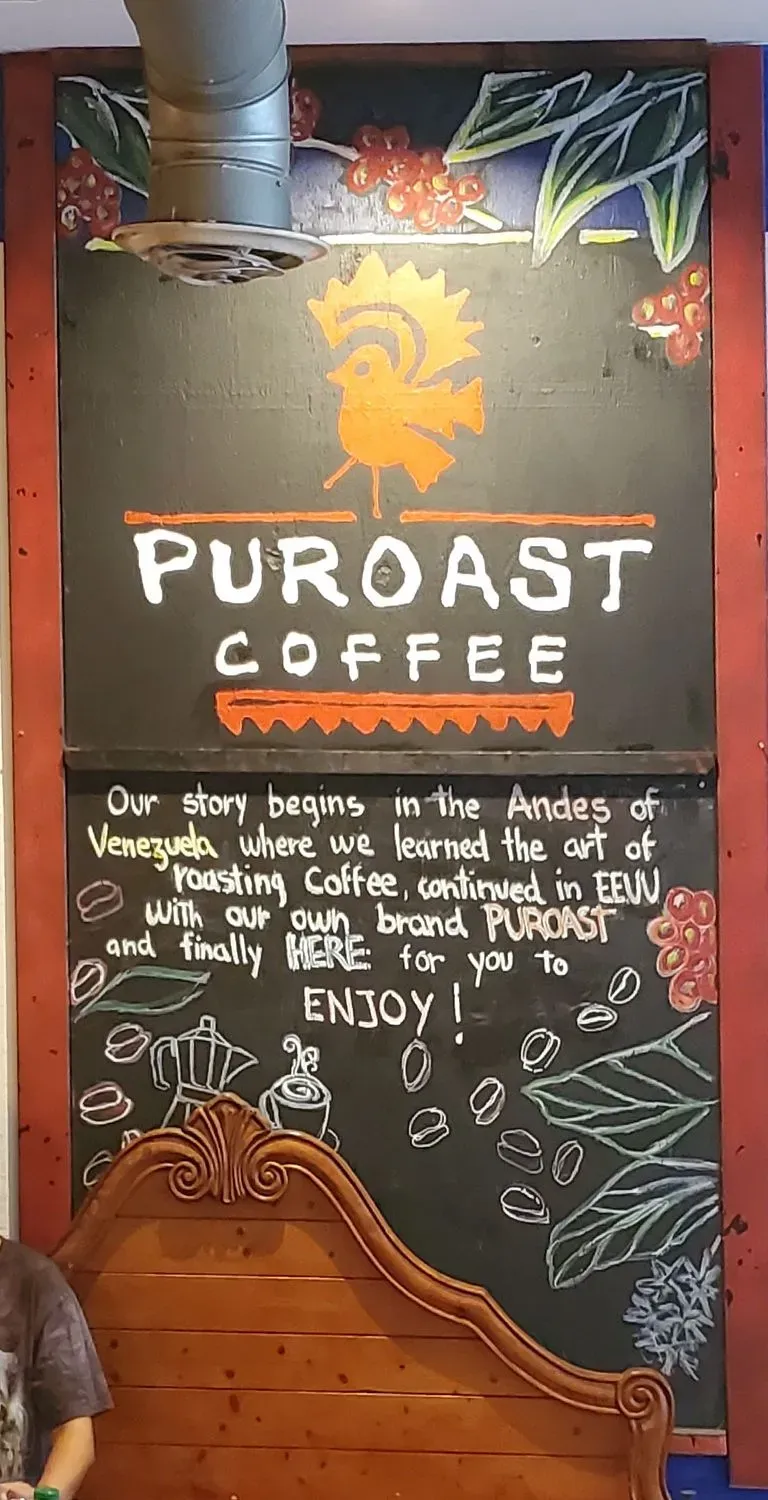 PUROAST
COFFEE
Our story begins in the Andes of
Venezuela where we learned the art of
roasting Coffee, continued in EEUU
with our own brand PUROAST
and finally HERE: for you to
ENJOY!